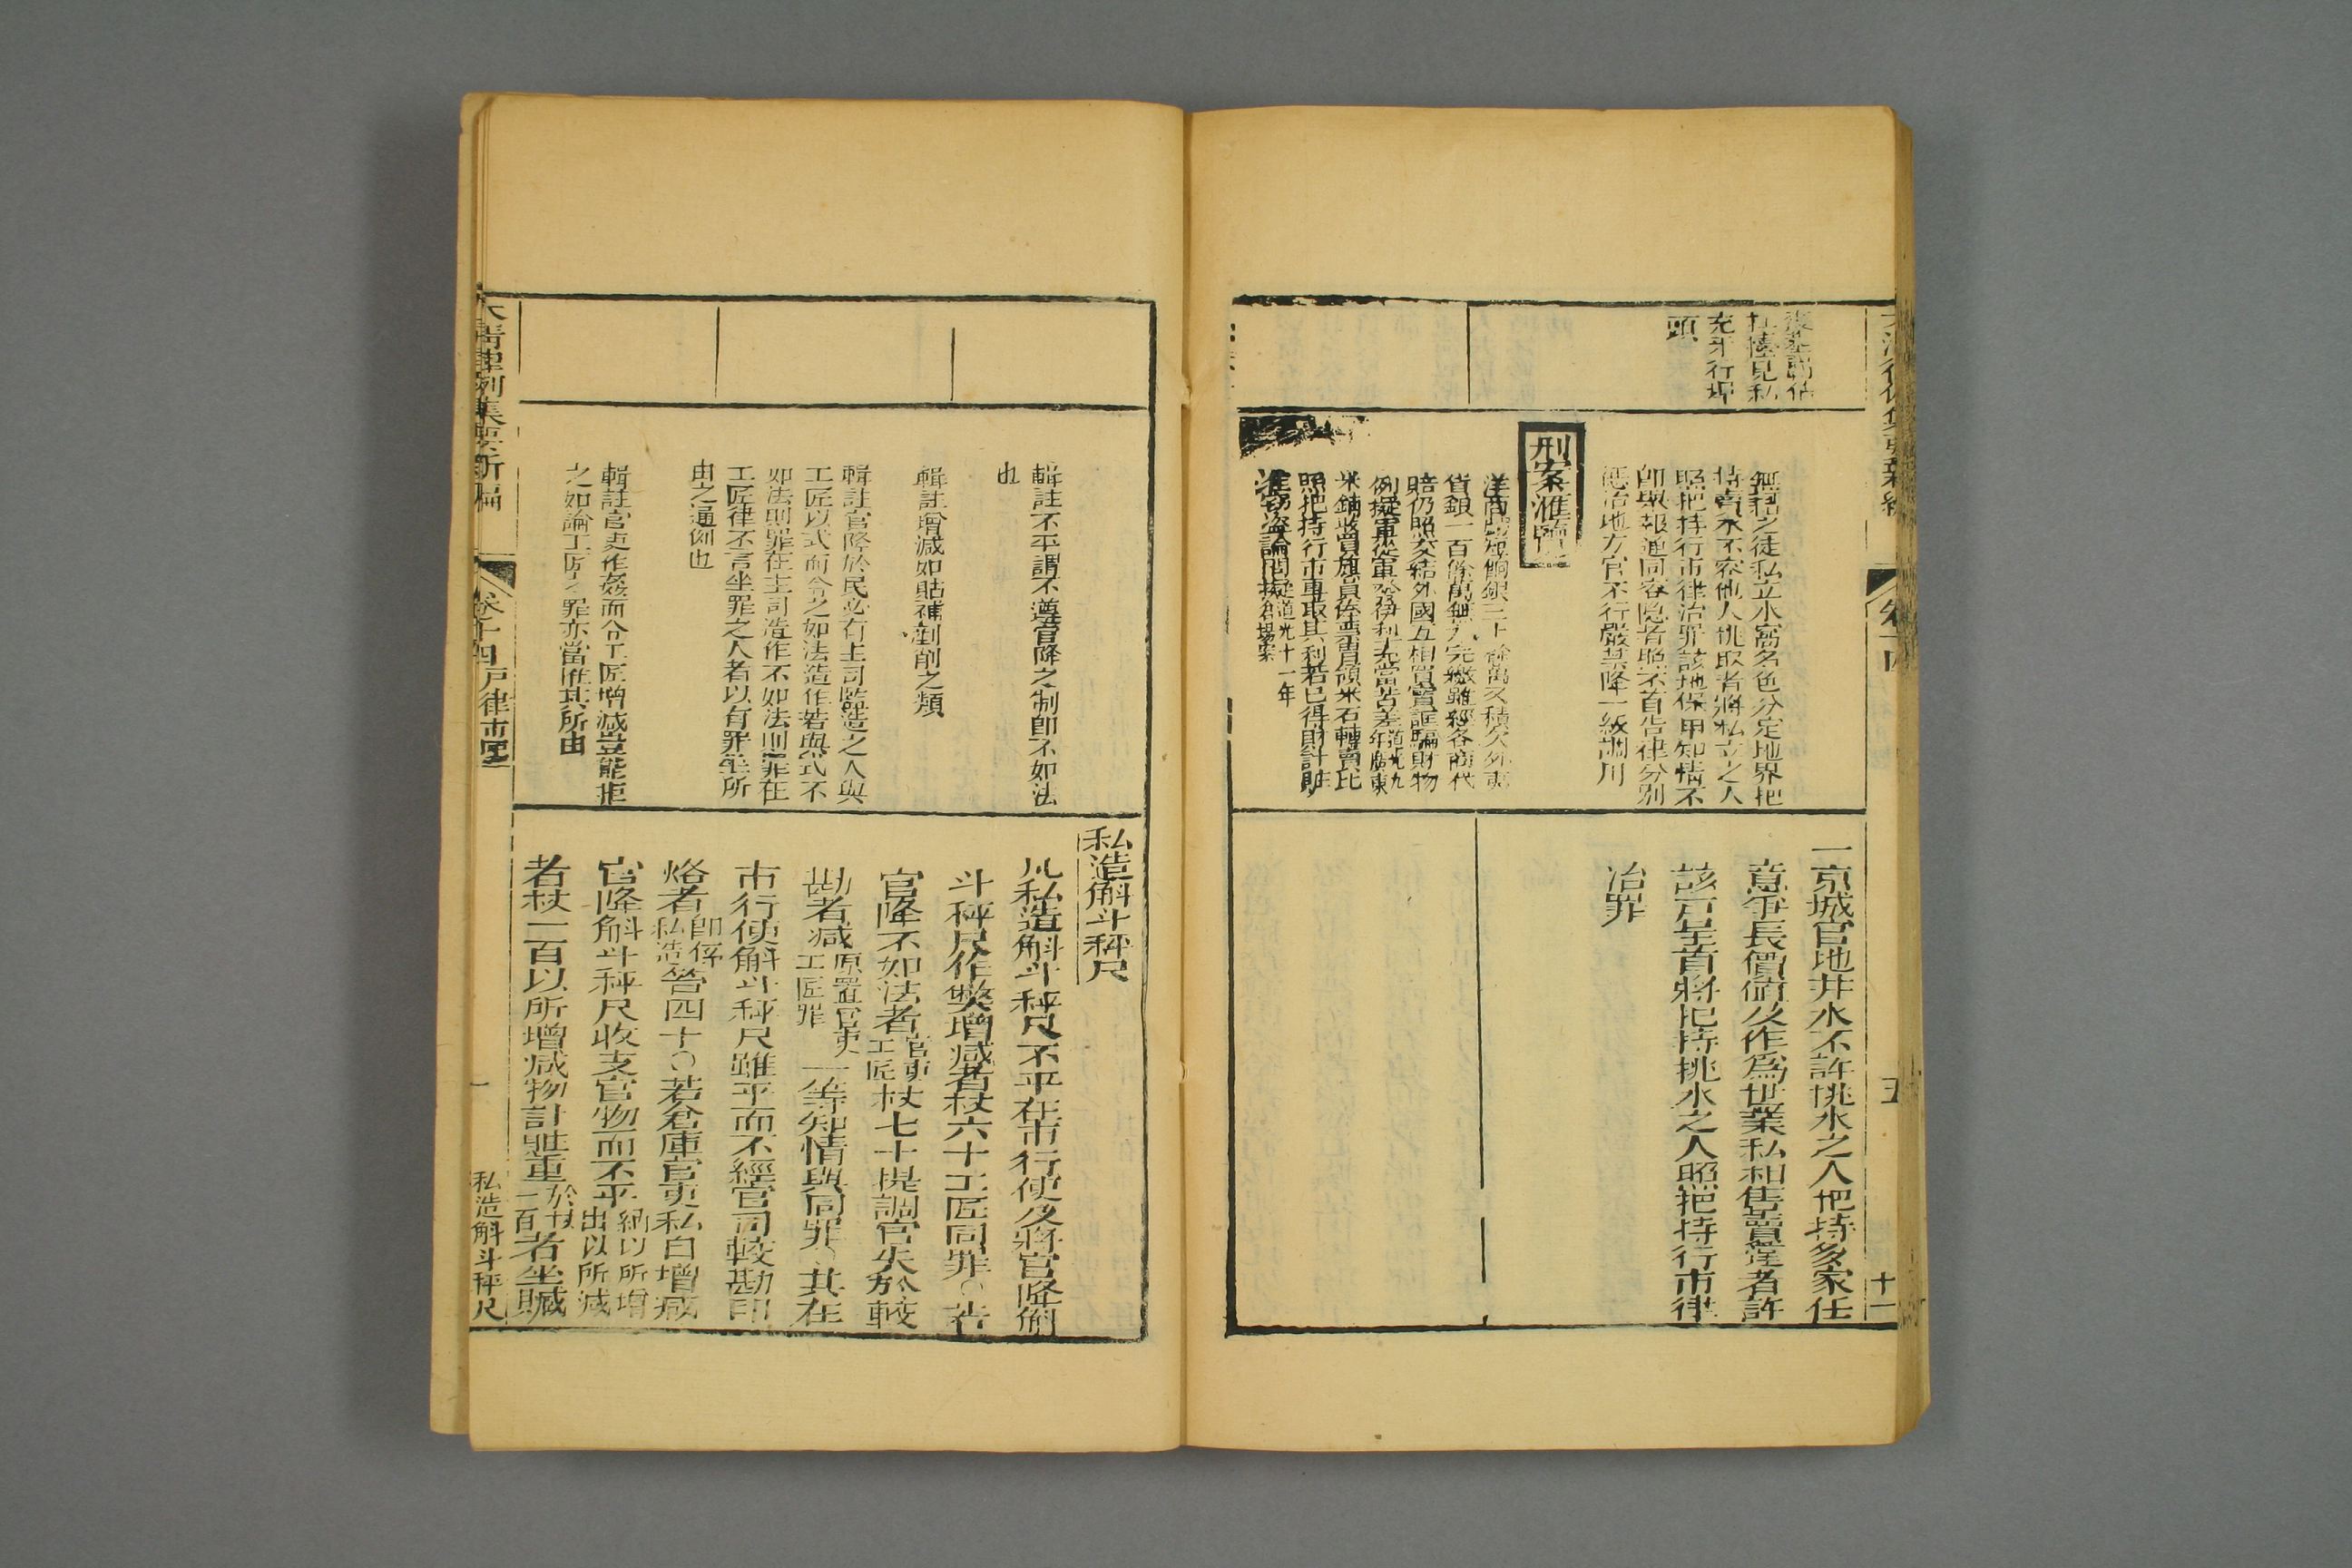 頭
充牙行埠
無利之徒私立水窩名色分定地界把
持賣水不容他人挑取者將私立之人
照把持行市律治罪該地保甲知情不
卽舉報通同容隱者照不首告律分別
懲治地方官不行嚴禁降一級調用
刑案滙覽
貨銀一百餘萬無力完繳雖經各商代
賠仍照交結外國互相買賣誆騙財物
例擬軍從重發伊犁充當苦差道光九年廣東
米鋪收買旗員俸票冒領米石轉賣比
照把持行市專取其利若已得財計贓
准竊盜論問擬道光十一年倉場案
一京城官地井水不許挑水之人把持多家任
意爭長價值及作爲世業私相售賣違者許
該戶呈首將把持挑水之人照把持行市律
治罪
十一
輯註不平謂不遵官降之制卽不如法
也
輯註增減如貼補剉削之類
輯註官降於民必有主司監造之人與
工匠以式而令之如法造作若與式不
如法則罪在主司造作不如法則罪在
工匠律不言坐罪之人者以有罪坐所
由之通例也
輯註官吏作姦而令工匠增減豈能拒
之如論工匠之罪亦當推其所由
私造斛斗秤尺
凡私造斛斗秤尺不平在市行使及將官降斛
斗秤尺作弊增減者杖六十工匠同罪○若
官降不如法者官吏工匠杖七十提調官失於較
勘者減原置官吏工匠罪一等知情與同罪○其在
市行使斛斗秤尺雖平而不經官司較勘印
烙者卽係私造笞四十○若倉庫官吏私自增減
官降斛斗秤尺收支官物而不平納以所增出以所減
者杖一百以所增減物計贓重於杖一百者坐贓
大清律例集要新編
卷十四戶律市廛
私造斛斗秤尺